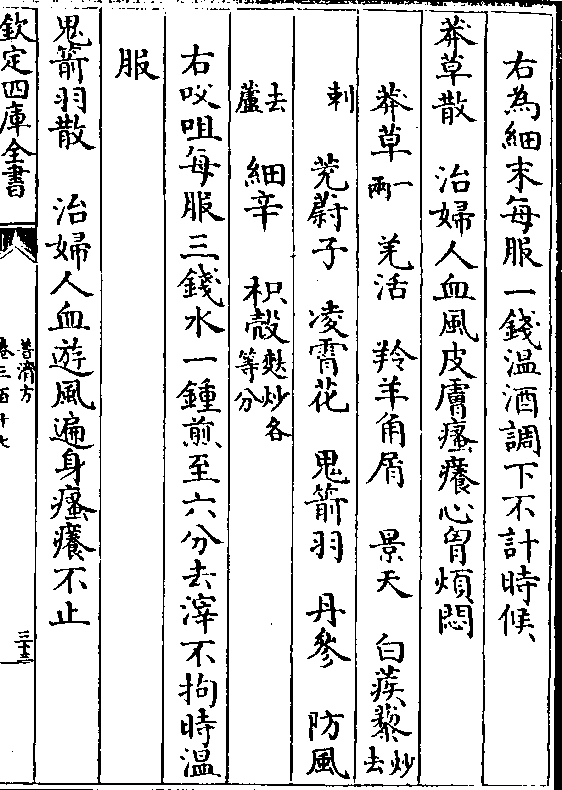 右為細末每服一錢温酒調下不計時候
莽草散　治婦人血風皮膚瘙癢心胷煩悶
莽草一兩　羌活　羚羊角屑　景天　白蒺藜炒去
刺　茺蔚子　凌霄花　鬼箭羽　丹參　防風
去蘆　細辛　枳殻麩炒各等分
右㕮咀每服三錢水一鍾煎至六分去滓不拘時温
服
鬼箭羽散　治婦人血遊風遍身瘙癢不止
欽定四庫全書
普濟方
卷三百十七